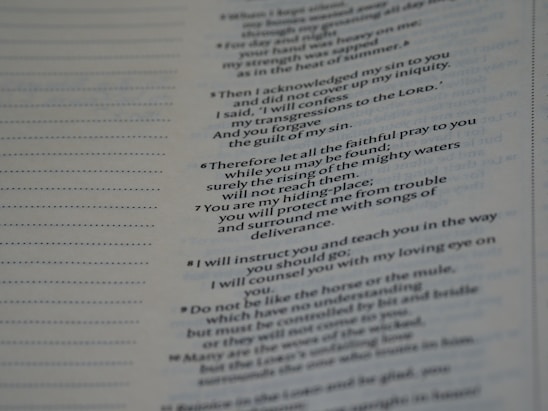 3 When I kept silent,
my bones wasted away
through my groaning all day long.
4 For day and night
your hand was heavy on me;
my strength was sapped
as in the heat of summer.b
5 Then I acknowledged my sin to you
and did not cover up my iniquity.
I said, ‘I will confess
my transgressions to the LORD.’
And you forgave
the guilt of my sin.
6 Therefore let all the faithful pray to you
while you may be found;
surely the rising of the mighty waters
will not reach them.
7 You are my hiding-place;
you will protect me from trouble
and surround me with songs of
deliverance.
8 I will instruct you and teach you in the way
you should go;
I will counsel you with my loving eye on
you.
9 Do not be like the horse or the mule,
which have no understanding
but must be controlled by bit and bridle
or they will not come to you.
10 Many are the woes of the wicked,
but the LORD’s unfailing love
surrounds the one who trusts in him.
11 Rejoice in the LORD and be glad, you